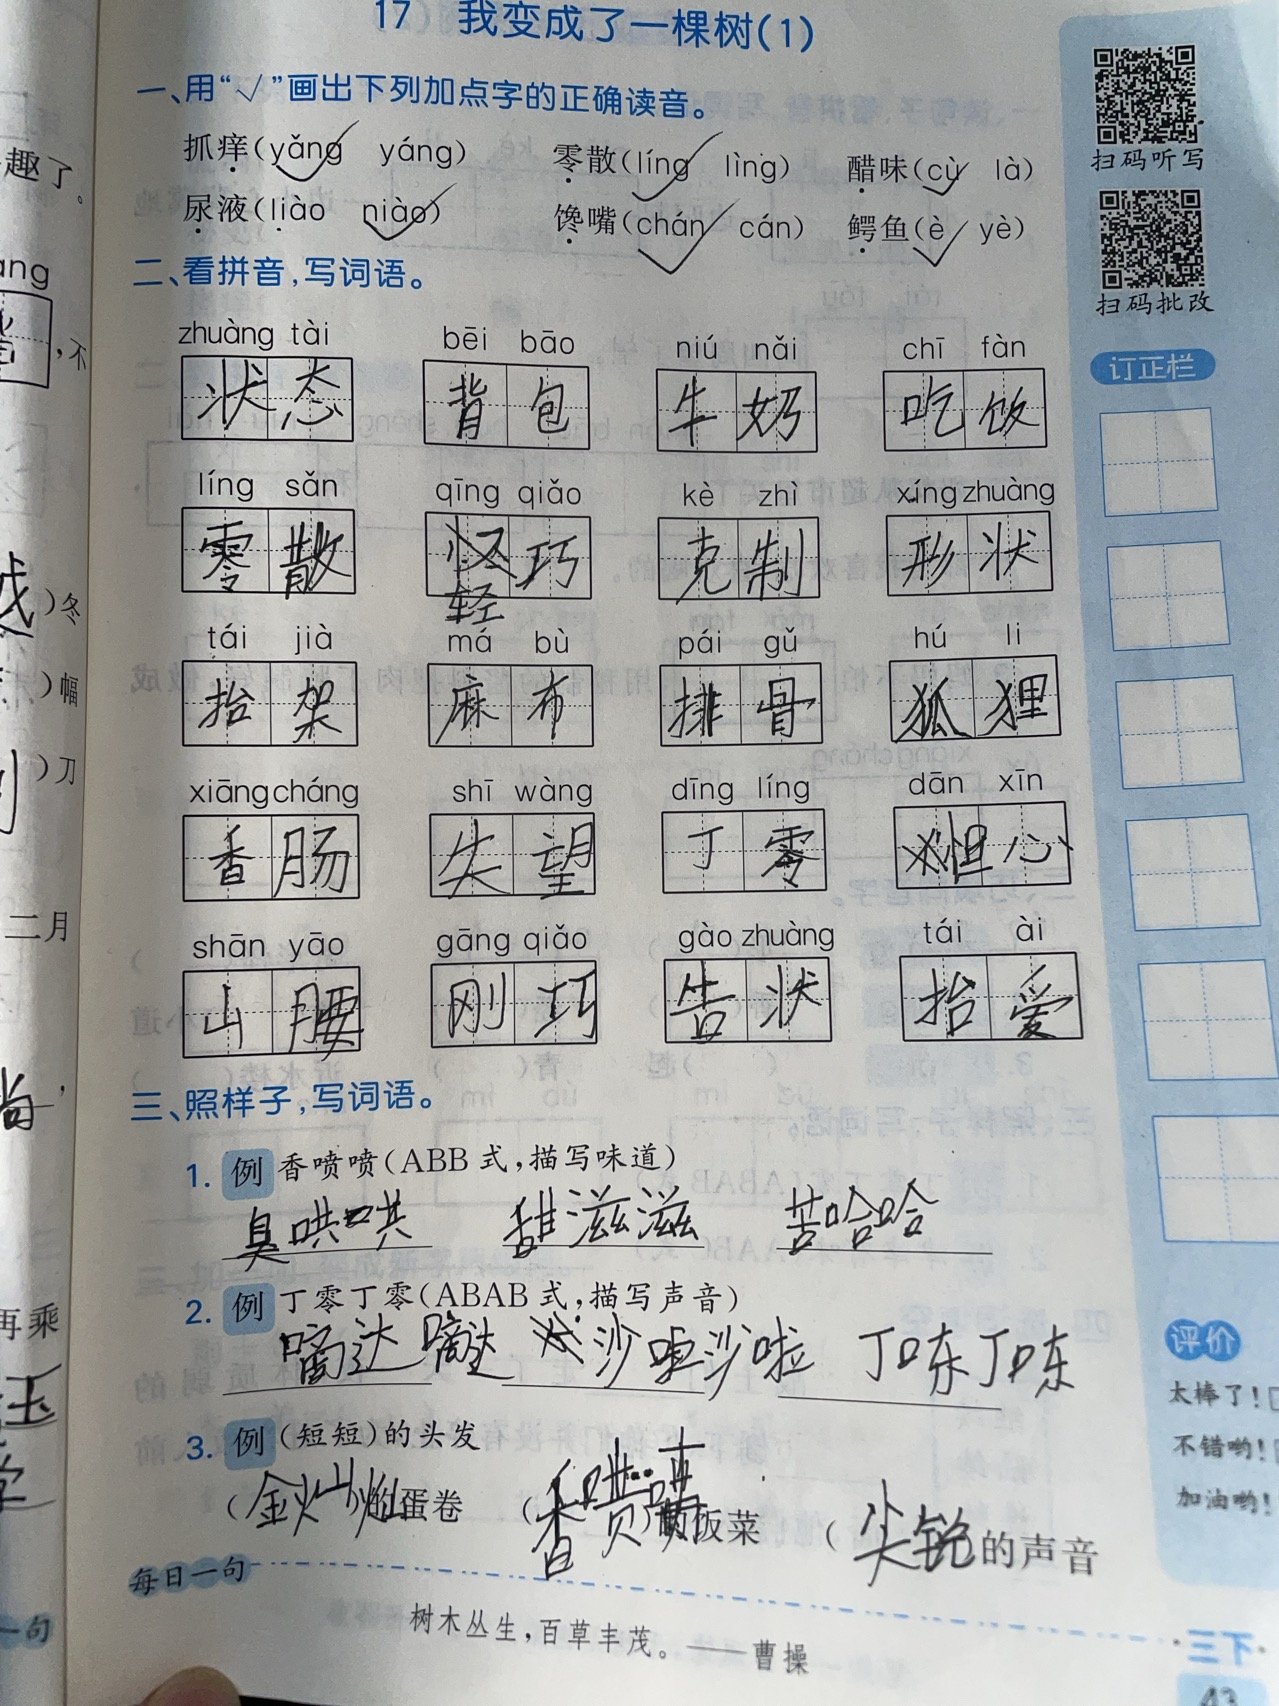 17 我变成了一棵树(1)
一、用“√”画出下列加点字的正确读音。
抓痒(yǎng yáng) 零散(líng lìng) 醋味(cù là)
尿液(liào niào) 馋嘴(chán cán) 鳄鱼(è yè)
二、看拼音,写词语。
zhuàng tài bēi bāo niú nǎi chī fàn
状态 背包 牛奶 吃饭
líng sǎn qīng qiǎo kè zhì xíng zhuàng
零散 巧 克制 形状
轻
tái jià má bù pái gǔ hú li
抬架 麻布 排骨 狐狸
xiāng cháng shī wàng dīng líng dān xīn
香肠 失望 丁零 担心
shān yāo gāng qiǎo gào zhuàng tái ài
山腰 刚巧 告状 抬爱
三、照样子,写词语。
1. 例 香喷喷(ABB式,描写味道)
臭哄哄 甜滋滋 苦哈哈
2. 例 丁零丁零(ABAB式,描写声音)
嘀达嘀达 沙啦沙啦 丁咚丁咚
3. 例 (短短)的头发
(金灿灿)的蛋卷 (香喷喷)的饭菜 (尖锐的声音
每日一句
树木丛生,百草丰茂。——曹操
扫码听写
扫码批改
订正栏
评价
太棒了!
不错哟!
加油哟!
三下
43
趣了。
ang
,不
)冬
)幅
)刀
二月
再乘
一句